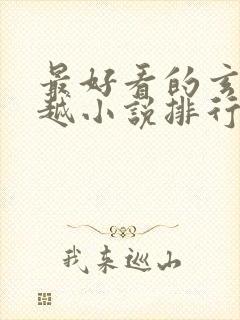 最好看的玄
越小说排行
我来巡山